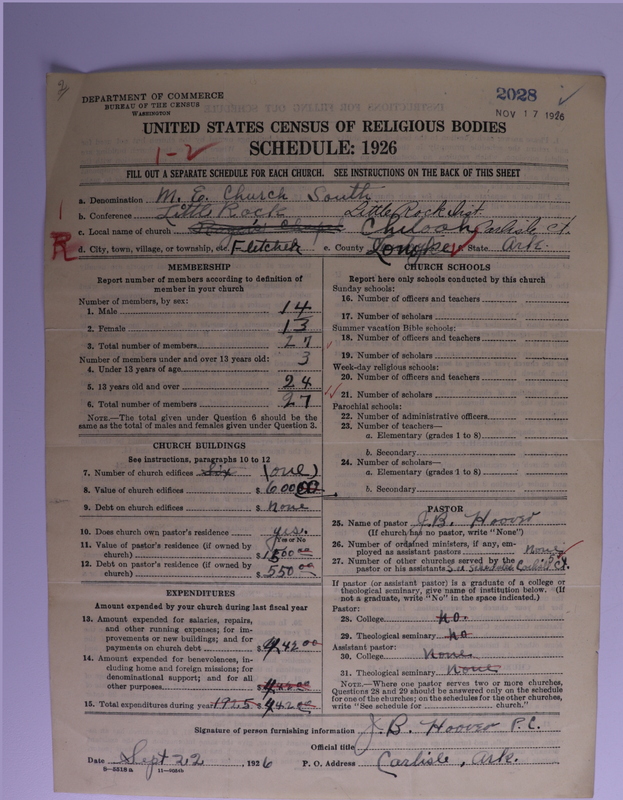 DEPARTMENT OF COMMERCE
BUREAU OF THE CENSUS
WASHINGTON
2028
NOV 17 1926
UNITED STATES CENSUS OF RELIGIOUS BODIES
1-2
SCHEDULE: 1926
FILL OUT A SEPARATE SCHEDULE FOR EACH CHURCH. SEE INSTRUCTIONS ON THE BACK OF THIS SHEET
a. Denomination M. E. Church South
b. Conference Little Rock Little Rock Dist.
c. Local name of church Chapel Church Carlisle Ct.
R d. City, town, village, or township, etc. Fletcher e. County Lonoke State Ark.
MEMBERSHIP
Report number of members according to definition of
member in your church
Number of members, by sex:
1. Male 14
2. Female 13
3. Total number of members 27
Number of members under and over 13 years old:
4. Under 13 years of age 3
5. 13 years old and over 24
6. Total number of members 27
NOTE.—The total given under Question 6 should be the
same as the total of males and females given under Question 3.
CHURCH BUILDINGS
See instructions, paragraphs 10 to 12
7. Number of church edifices Six (one)
8. Value of church edifices $ 600 00
9. Debt on church edifices $ None
10. Does church own pastor's residence? yes.
Yes or No
11. Value of pastor's residence (if owned by
church) $ 1500 00
12. Debt on pastor's residence (if owned by
church) $ 550 00
EXPENDITURES
Amount expended by your church during last fiscal year
13. Amount expended for salaries, repairs,
and other running expenses; for im-
provements or new buildings; and for
payments on church debt $ 442 00
14. Amount expended for benevolences, in-
cluding home and foreign missions; for
denominational support; and for all
other purposes $
15. Total expenditures during year 1925 $ 442 00
CHURCH SCHOOLS
Report here only schools conducted by this church
Sunday schools:
16. Number of officers and teachers
17. Number of scholars
Summer vacation Bible schools:
18. Number of officers and teachers
19. Number of scholars
Week-day religious schools:
20. Number of officers and teachers
21. Number of scholars
Parochial schools:
22. Number of administrative officers
23. Number of teachers—
a. Elementary (grades 1 to 8)
b. Secondary
24. Number of scholars—
a. Elementary (grades 1 to 8)
b. Secondary
PASTOR
25. Name of pastor J. B. Hoover
(If church has no pastor, write "None")
26. Number of ordained ministers, if any, em-
ployed as assistant pastors None
27. Number of other churches served by the
pastor or his assistants See Schedule Carlisle Ct.
If pastor (or assistant pastor) is a graduate of a college or
theological seminary, give name of institution below. (If
not a graduate, write "No" in the space indicated.)
Pastor:
28. College no.
29. Theological seminary no
Assistant pastor:
30. College None
31. Theological seminary None
NOTE.—Where one pastor serves two or more churches,
Questions 28 and 29 should be answered only on the schedule
for one of the churches; on the schedules for the other churches,
write "See schedule for church."
Signature of person furnishing information J. B. Hoover P.C.
Official title
Date Sept 22, 1926 P. O. Address Carlisle, Ark.
8-5518 a 11-9024b